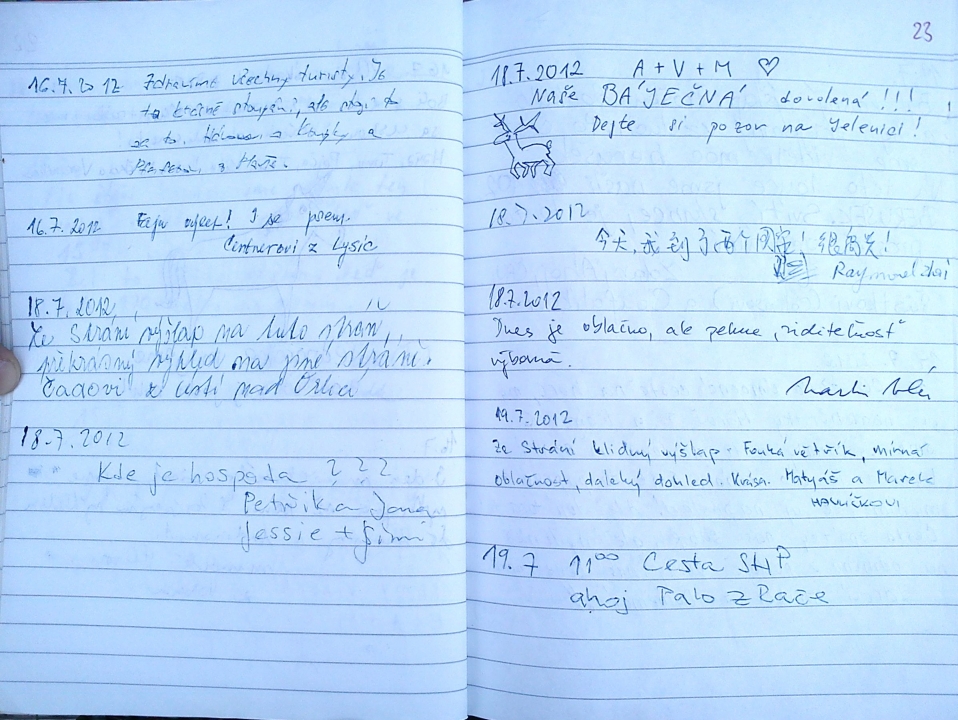 16.7.2012 Zdravíme všechny turisty. Je
to krásné stoupání, ale stojí to
za to.
16.7.2012 Fajn výlet! I se psem.
Cintnerovi z Lysic
18.7.2012
Ze Strání výšlap na tuto stráň,
překrásný výhled na jiné stráně.
Čadovi z Ústí nad Orlicí
18.7.2012
Kde je hospoda ???
Petřík a Jana
Jessie + Jimi
23
18.7.2012 A + V + M ♡
Naše BÁJEČNÁ dovolená!!!
Dejte si pozor na Jelenici!
18.7.2012
今天,我到了两个国家!很高兴!
Raymond
18.7.2012
Dnes je oblačno, ale pekne, "viditeľnosť"
výborná.
Martin
19.7.2012
Ze Strání klidný výšlap. Fouká větřík, mírná
oblačnost, daleký dohled. Krása. Matyáš a Marek
HAVLÍČKOVI
19.7 11⁰⁰ Cesta SNP
ahoj Palo z Rače